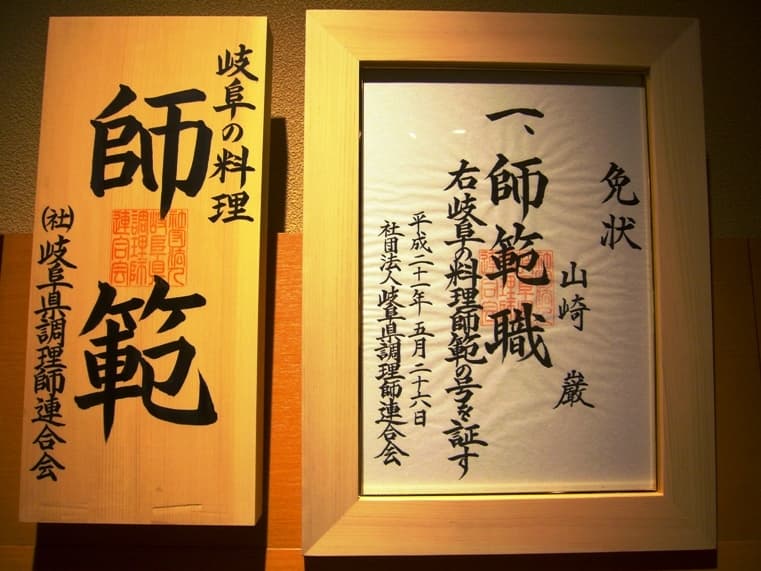 岐阜の料理
師範
(社)岐阜県調理師連合会
免状
山崎 巌
一、師範職
右岐阜の料理師範の号を証す
平成二十一年五月二十六日
社団法人岐阜県調理師連合会